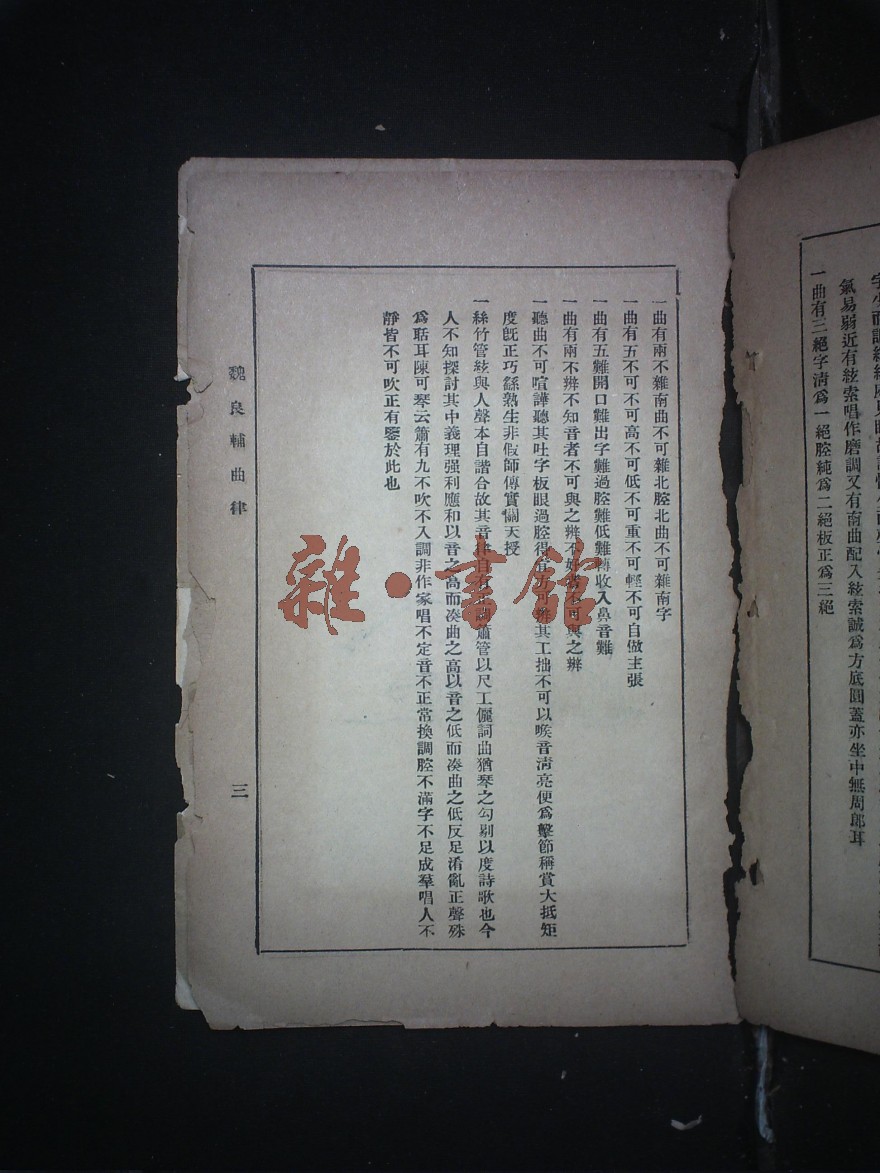 氣易弱近有絃索唱作磨調又有南曲配入絃索誠爲方底圓蓋亦坐中無周郎耳
一曲有三絕字淸爲一絕腔純爲二絕板正爲三絕
一曲有兩不雜南曲不可雜北腔北曲不可雜南字
一曲有五不可不可高不可低不可重不可輕不可自做主張
一曲有五難開口難出字難過腔難低難轉收入鼻音難
一曲有兩不辨不知音者不可與之辨不好者不可與之辨
一聽曲不可喧譁聽其吐字板眼過腔得宜方可辨其工拙不可以喉音淸亮便爲擊節稱賞大抵矩
度旣正巧繇熟生非假師傳實關天授
一絲竹管絃與人聲本自諧合故其音律自有正調簫管以尺工儷詞曲猶琴之勾剔以度詩歌也今
人不知探討其中義理强利應和以音之高而凑曲之高以音之低而凑曲之低反足淆亂正聲殊
爲聒耳陳可琴云簫有九不吹不入調非作家唱不定音不正常換調腔不滿字不足成羣唱人不
靜皆不可吹正有鑒於此也
魏良輔曲律
三
雜·書館